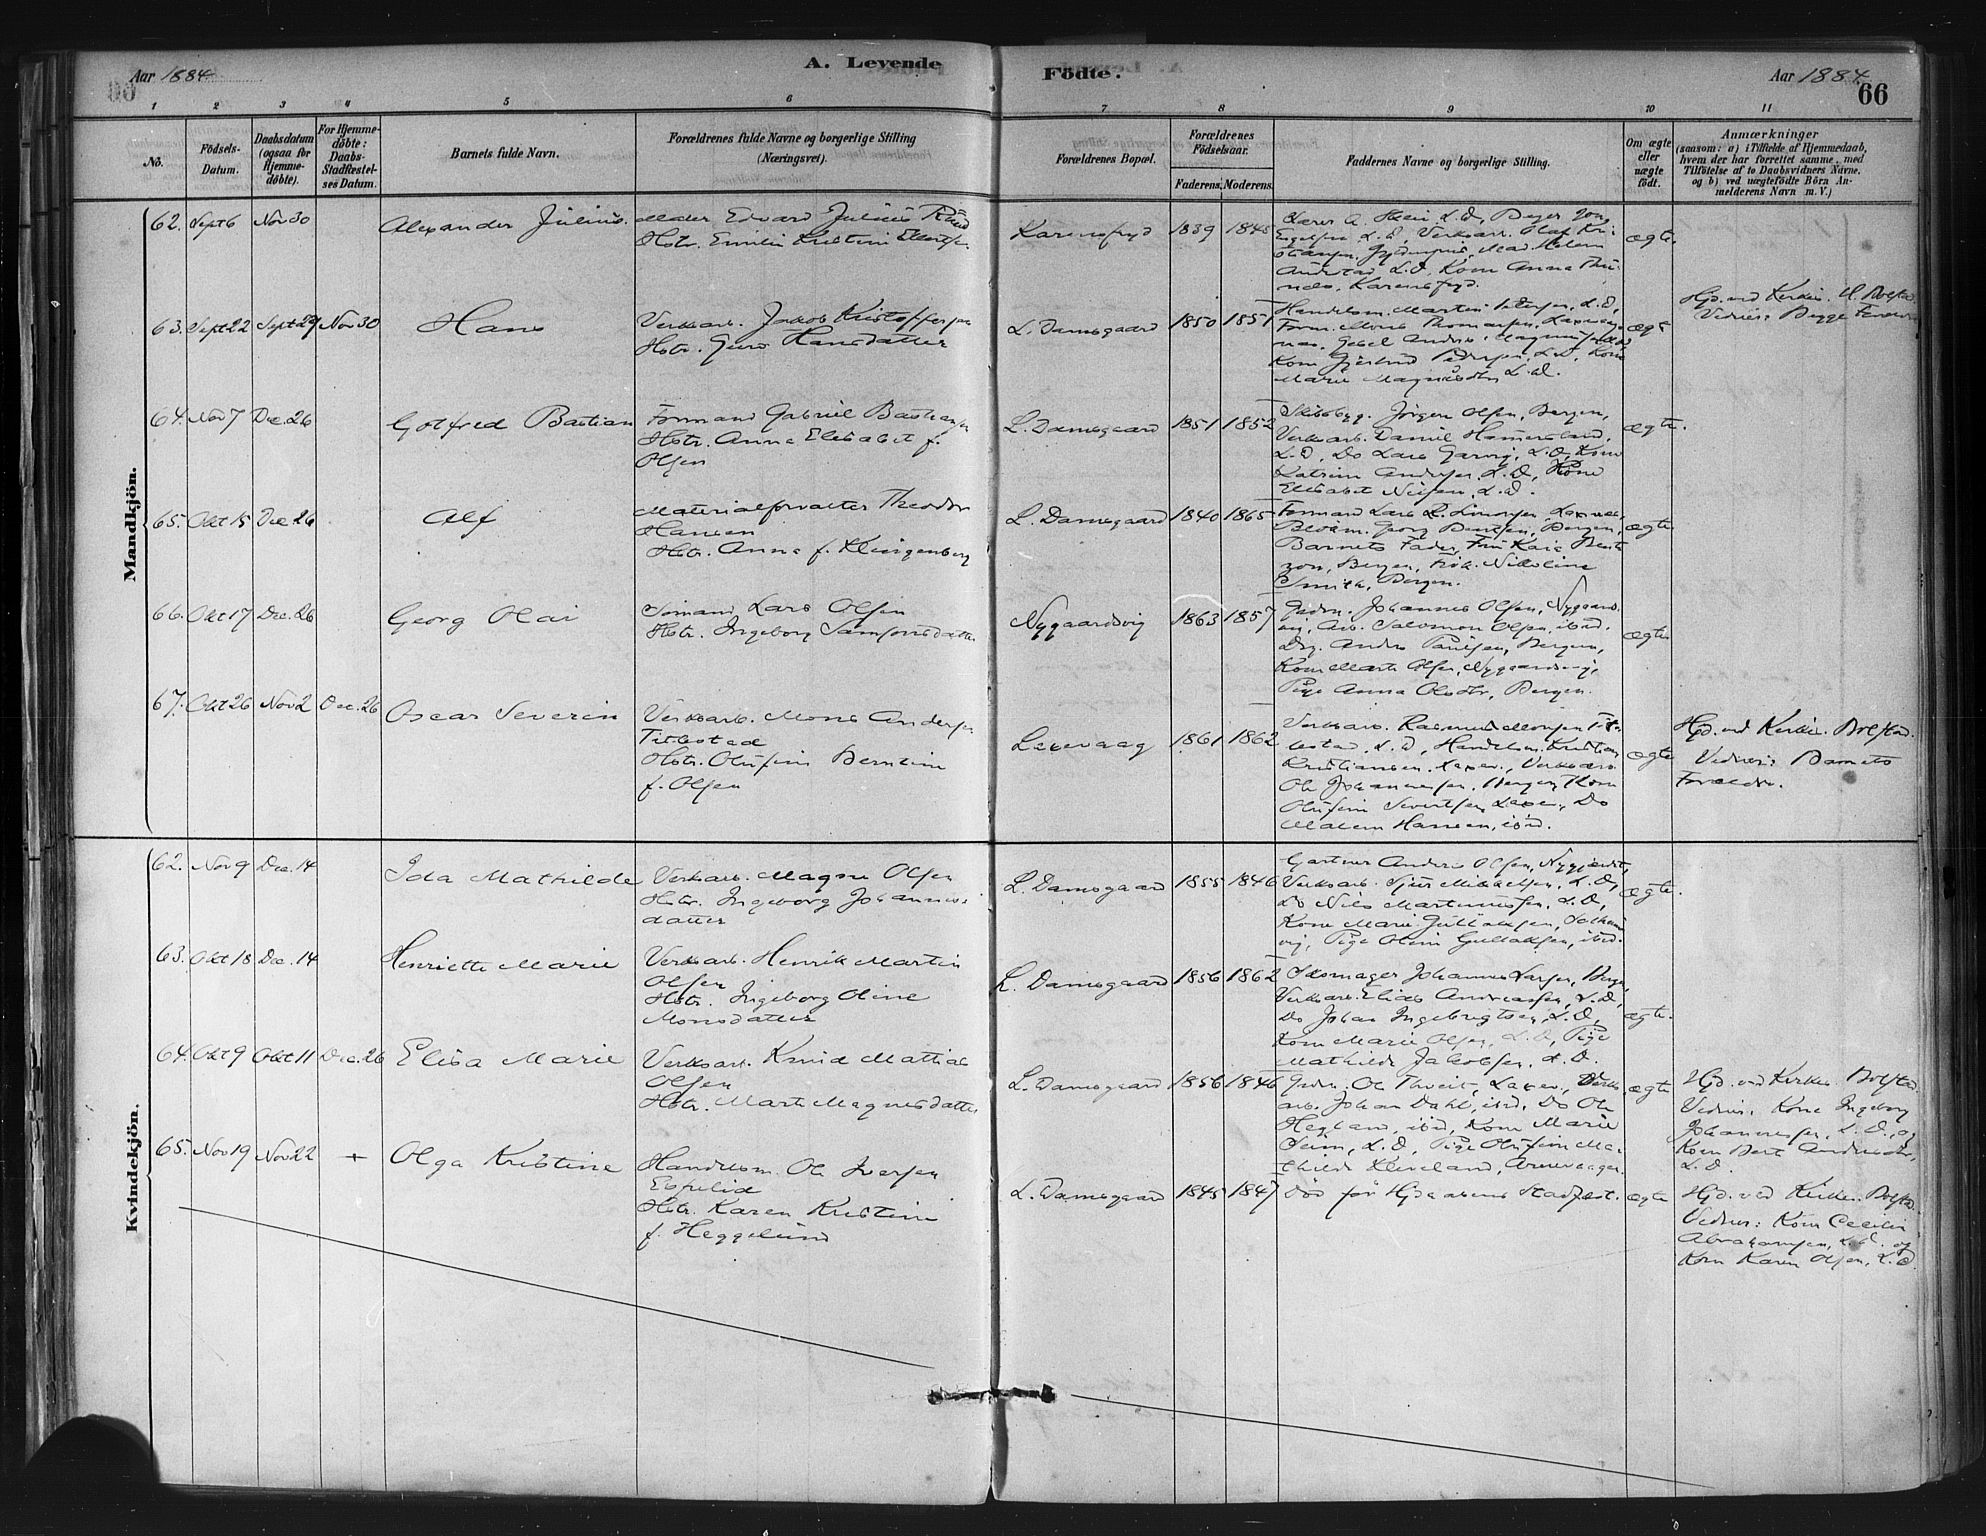 Aar 1884
A. Levende
Födte.
Aar 1884
66
1 2 3 4 5 6 7 8 9 10 11
No.
Födsels-Datum.
Daabsdatum (ogsaa for Hjemme-döbte).
For Hjemme-döbte: Daabs-Stadfæstel-ses Datum.
Barnets fulde Navn.
Forældrenes fulde Navne og borgerlige Stilling (Næringsvei).
Forældrenes Bopæl.
Forældrenes Födselsaar.
Faderens. Moderens.
Faddernes Navne og borgerlige Stilling.
Om ægte eller uægte födt.
Anmærkninger
(saasom: a) i Tilfælde af Hjemmedaab,
hvem der har forrettet samme, med
Tilföielse af to Daabsvidners Navne,
og b) ved uægtefödte Börn An-
melderens Navn m. V.)
Mandkjön.
62. Sept 6 Nov 30 Alexander Julius.
Maler Edvard Julius
Hstr. Emilie Kristine
Karensfryd 1839 1845
Olaf Kri-
Kone Anna
Karensfryd.
ægte.
63. Sept 22 Sept 29 Nov 30 Hans
Verksarb. Jakob Kristoffersen
Hstr. Guro Hansdatter
L. Damsgaard 1850 1851
Handelsm. Marten Petersen, L.D,
Form. Mons Thomassen, Laxevaag
Kone Gjertrud Pedersen, L.D, Kone
Marie Magnusdtr, L.D.
ægte
Hjd. ved Kirkes. Bolstad.
Vidner: Begge
64. Nov 7 Dec. 26 Gotfred Bastian
Formand Gabriel Bastiansen
Hstr. Anna Elisabet f.
Olsen
L. Damsgaard 1851 1852
Skibsbyg. Jörgen Olsen, Bergen,
Verksarb. Daniel Hammersland,
L.D, Do Lars Garvig, L.D, Kone
Katrine Andersen, L.D, Kone
Elisabet Nilsen, L.D.
ægte.
65. Okt 15 Dec 26 Alf
Materialforvalter Theodor
Hansen
Hstr. Anna f. Klingenberg
L. Damsgaard 1840 1865
Formand Lars
Georg Bentzen, Bergen,
Barnets Fader, Fru Kaia Bent-
zon, Bergen, Frök. Nikoline
Smith, Bergen.
ægte.
66. Okt 17 Dec. 26 Georg Olai
Sömand Lars Olsen
Hstr. Ingeborg Samsonsdatter
Nygaardsvig 1863 1857
Gaardm. Johannes Olsen, Nygaards-
vig, Arb. Salomon Olsen, ibid.
Anders Paulsen, Bergen,
Kone Marta Olsen, Nygaardsvig,
Pige Anna Olsdtr, Bergen.
ægte
67. Okt 26 Nov 2 Dec. 26 Oscar Severin
Verksarb. Mons Andersen
Titlestad
Hstr. Olufine Berntine
f. Olsen
Laxevaag 1861 1862
Verksarb. Rasmus Monsen Tit-
lestad, L.D, Handelsm. Kristian
Kristiansen, Laxev., Verksarb.
Ole Johannessen, Bergen, Kone
Olufine Sivertsen, Laxev., Do
Malene Hansen, ibid.
ægte
Hjd. ved Kirkes. Bolstad.
Vidner: Barnets
Forældre.
Kvindekjön.
62. Nov 9 Dec. 14 Ida Mathilde
Verksarb. Magne Olsen
Hstr. Ingeborg Johannes-
datter
L. Damsgaard 1855 1846
Gartner Anders Olsen,
Verksarb. Sjur Mikkelsen, L.D,
Do Nils Martinussen, L.D,
Kone Marie Gullaksen, Solheims-
vig, Pige Oline Gullaksen, ibid.
ægte.
63. Okt 18 Dec. 14 Henriette Marie
Verksarb. Henrik Martin
Olsen
Hstr. Ingeborg Oline
Monsdatter
L. Damsgaard 1856 1862
Skomager Johannes Larsen, Bergen,
Verksarb. Elias Andreassen, L.D,
Do Johan Ingebrigtsen, L.D,
Kone Marie Olsen, L.D, Pige
Mathilde Jakobsen, L.D.
ægte.
64. Okt 9 Okt 11 Dec. 26 Elisa Marie
Verksarb. Knud Mattias
Olsen
Hstr. Marta Magnesdatter
L. Damsgaard 1856 1846
Gaardm. Ole Thveit, Laxev., Verks-
arb. Johan Dahl, ibid, Do Ole
Hegland, ibid, Kone Marie
Seim, L.D, Pige Olufine Ma-
thilde Kleveland,
ægte
Hjd. ved Kirkes. Bolstad.
Vidner: Kone Ingeborg
Johannessen, L.D., og
Kone Berit
L.D.
65. Nov 19 Nov 22 + Olga Kristine
Handelsm. Ole Iversen
Espelid
Hstr. Karen Kristine
f. Heggelund
L. Damsgaard 1845 1847
Död för Hjdaabens Stadfæst.
ægte
Hjd. ved Kirkes. Bolstad.
Vidner: Kone Cecilie
Abrahamsen, L.D. og
Kone Karen Olsen, L.D.